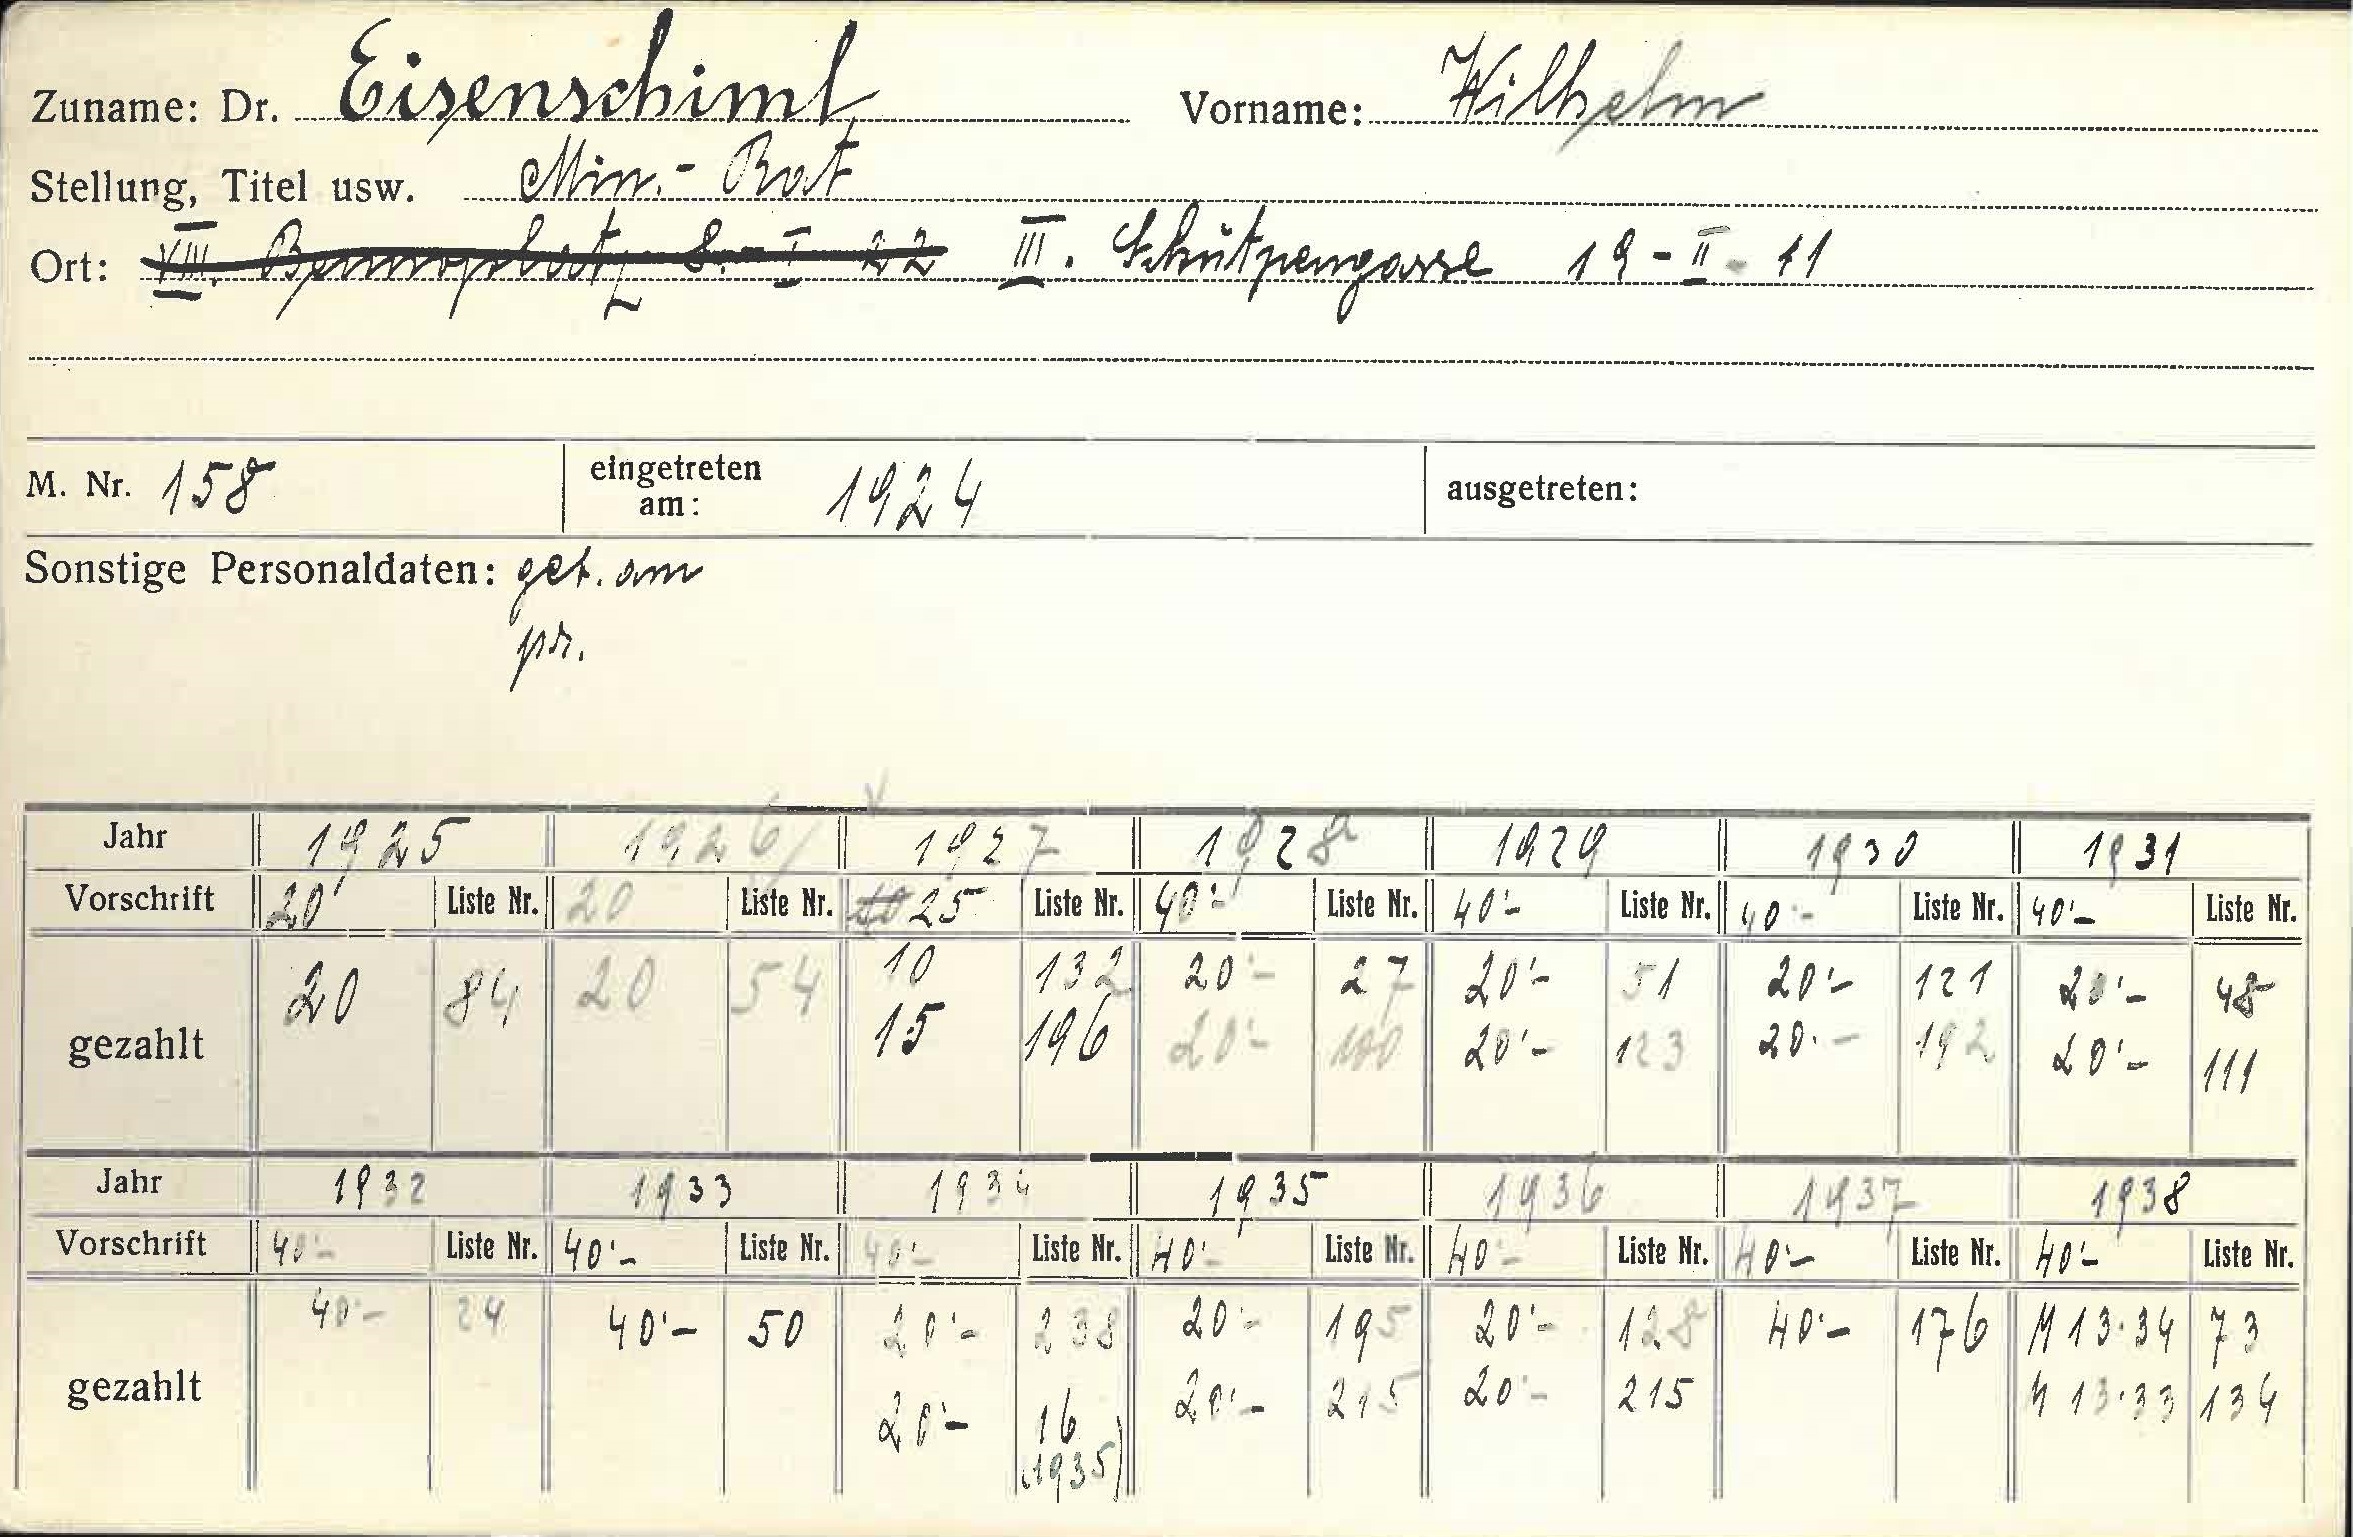 Zuname: Dr. Eisenschiml Vorname: Wilhelm
Stellung, Titel usw. Min.- Rat
Ort: VIII. Bennoplatz 8.-I 22 III. Schützengasse 19-II-11
M. Nr. 158 eingetreten am: 1924 ausgetreten:
Sonstige Personaldaten: geb. am
pr.
Jahr 1925 1926 1927 1928 1929 1930 1931
Vorschrift 20'- Liste Nr. 20 Liste Nr. 40 25 Liste Nr. 40'- Liste Nr. 40'- Liste Nr. 40'- Liste Nr. 40'- Liste Nr.
gezahlt 20 84 20 54 10 132 20'- 27 20'- 51 20'- 121 20'- 48
15 196 20'- 100 20'- 123 20.- 192 20'- 111
Jahr 1932 1933 1934 1935 1936 1937 1938
Vorschrift 40'- Liste Nr. 40'- Liste Nr. 40'- Liste Nr. 40'- Liste Nr. 40'- Liste Nr. 40'- Liste Nr. 40'- Liste Nr.
gezahlt 40'- 24 40'- 50 20'- 238 20'- 195 20'- 128 40'- 176 M 13.34 73
20'- 16 20'- 215 20'- 215 M 13.33 134
(1935)